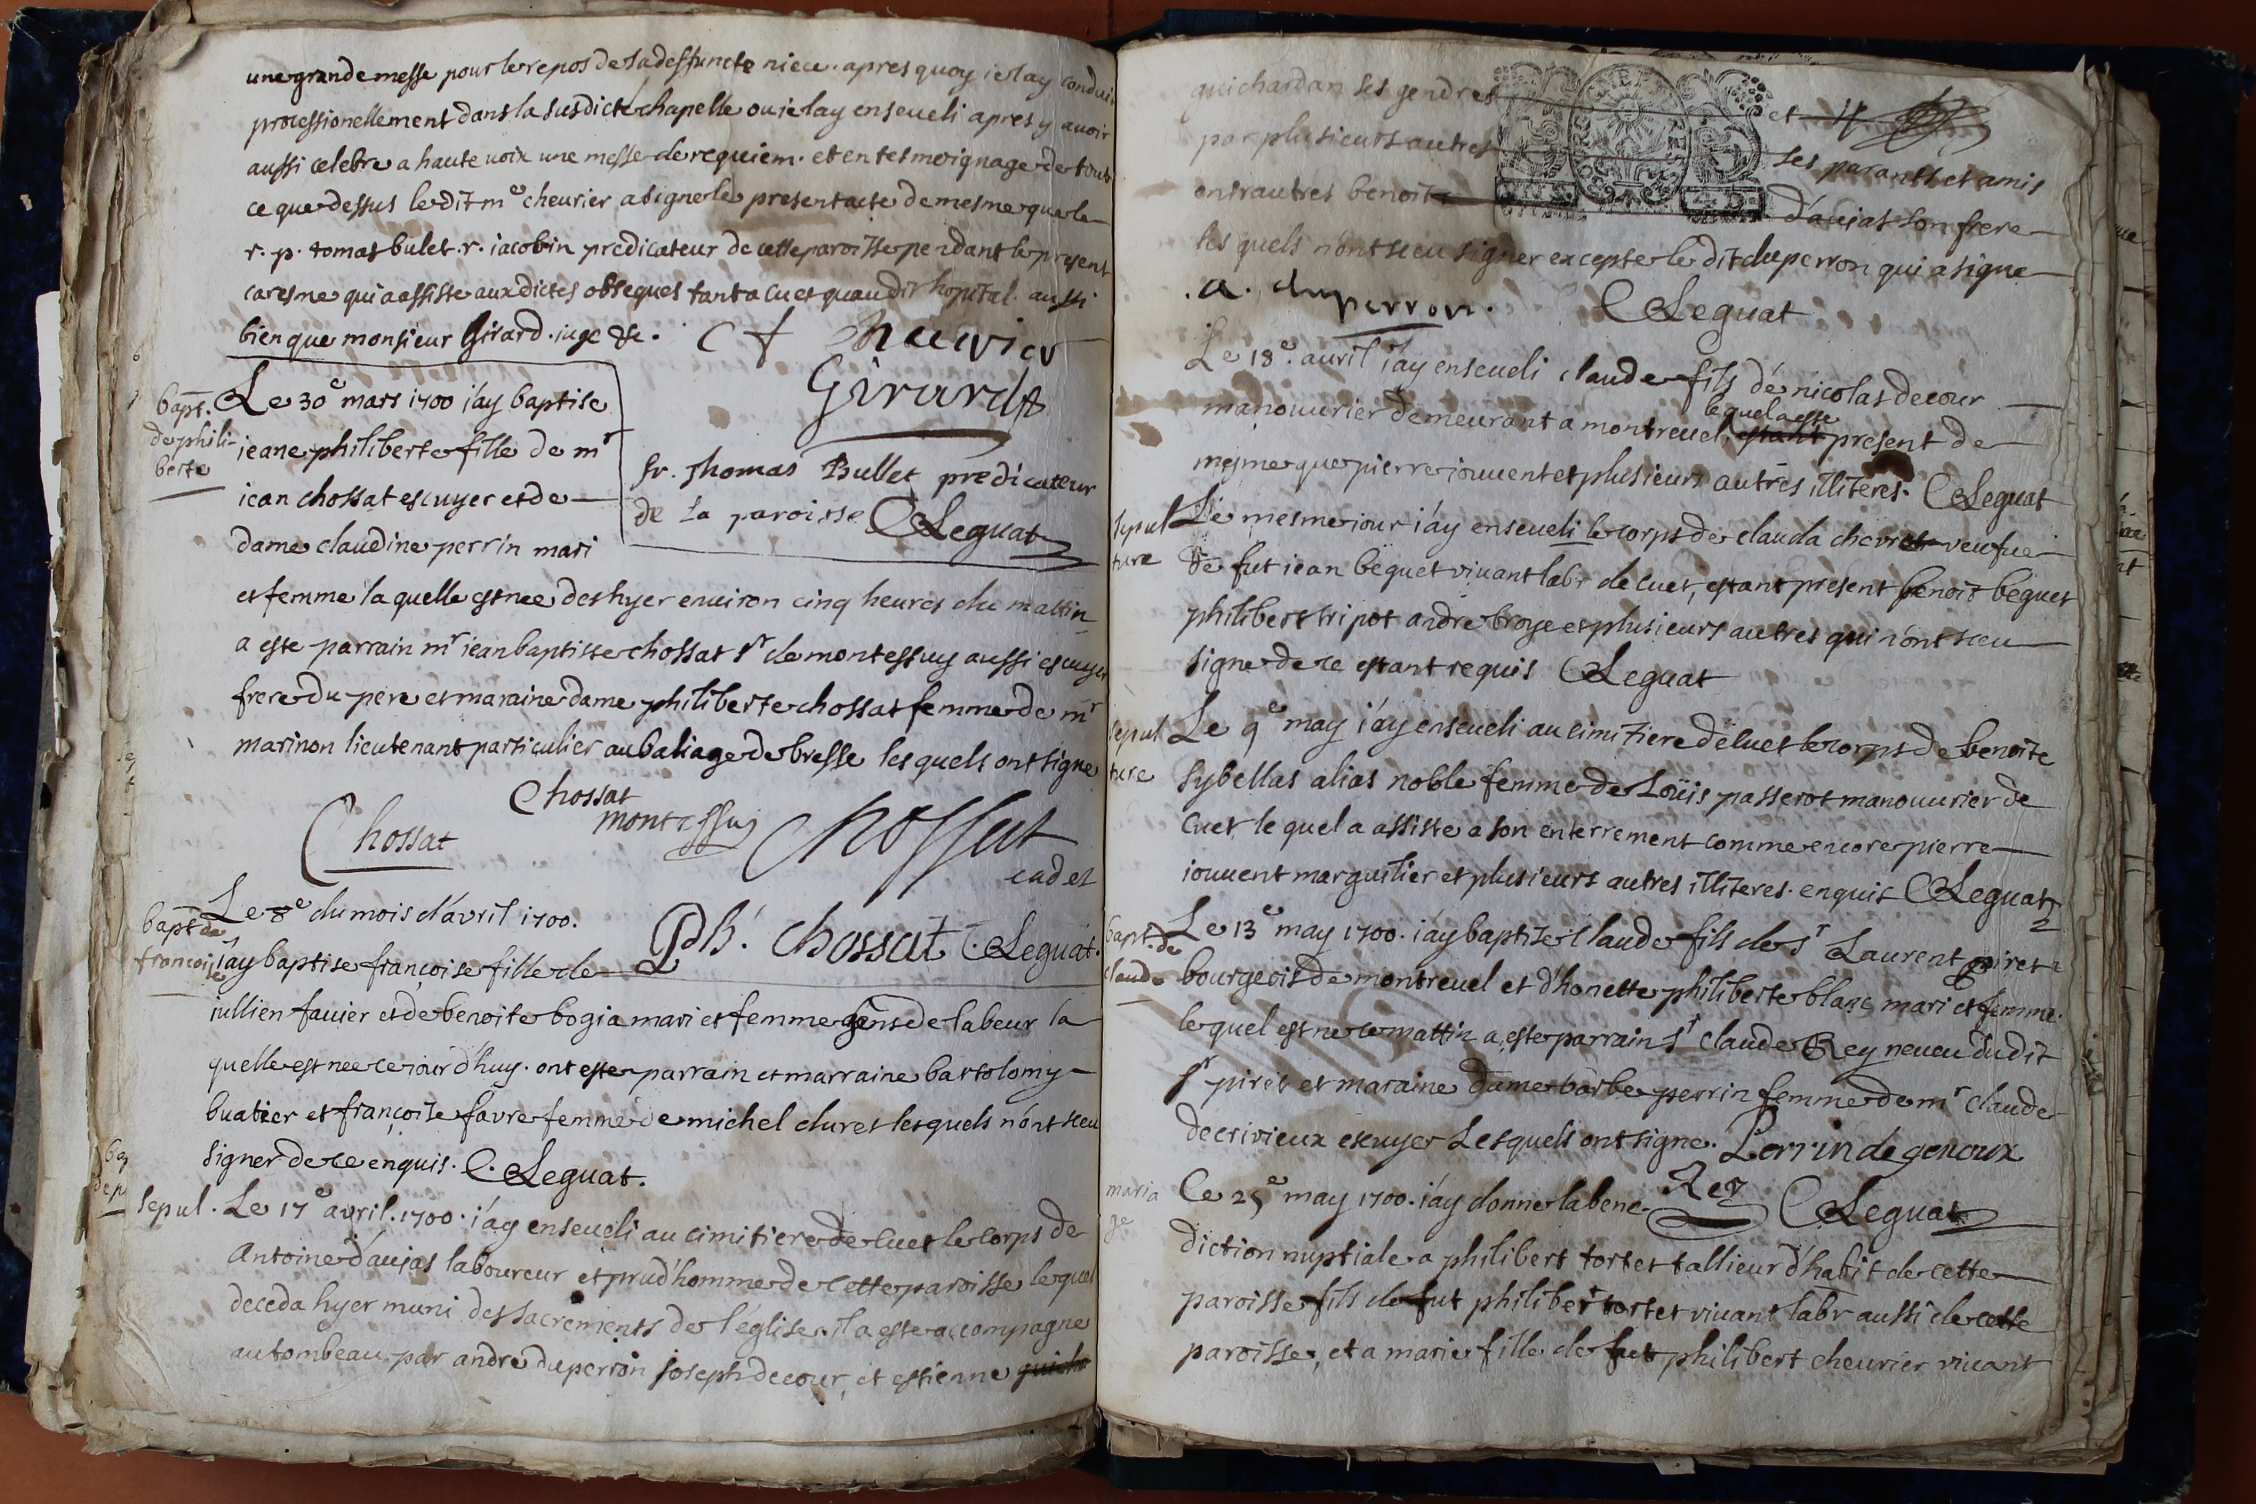 une grande messe pour le repos de sa deffuncte niece. apres quoy ie lay conduit
processionellement dans la susdicte chapelle ou ie lay enseveli apres y avoir
aussi celebre a haute voix une messe de requiem. et en tesmoignage de tout
ce que dessus le dit mᵉ cheurier a signe le present acte de mesme que le
r. p. tomas bulet. r. iacobin predicateur de cette paroisse pendant le present
caresme qui a assiste aux dictes obseques tant a Cuet quau dit hopital. aussi
bien que monsieur Girard. iuge &c.
Cheurier
Girard
fr. Thomas Bullet predicateur
de la paroisse CLeguat
bapt.
de phili-
berte
Le 30ᵉ mars 1700 i'ay baptise
ieane philiberte fille de mʳ
iean chossat escuyer et de
dame claudine perrin mari
et femme la quelle est nee des hyer environ cinq heures du mattin
a este parrain mʳ iean baptiste chossat sʳ de montessuy aussi escuyer
frere du pere et maraine dame philiberte chossat femme de mʳ
marinon lieutenant particulier au baliage de bresse les quels ont signe
Chossat
Chossat
montessuy
Chossat
cadet
Ph. Chossat C. Leguat.
bapt de
françoise
Le 8ᵉ du mois d'avril 1700.
i'ay baptise françoise fille de
iullien favier et de benoite bogia mari et femme gens de labeur la
quelle est nee ce iour d'huy. ont este parrain et marraine bartolomy
buatier et françoise favre femme de michel duret les quels n'ont sceu
signer de ce enquis. C. Leguat.
sepul.
Le 17ᵉ avril. 1700. i'ay enseveli au cimitiere de Cuet le corps de
Antoine d'aujas laboureur et prud'homme de cette paroisse le quel
deceda hyer muni des sacrements de l'eglise. il a este accompagne
au tombeau par andre duperron ioseph decour, et estienne guicha
guichardan ses gendres et
par plusieurs autres ses parants et amis
entrautres benoit d'aujas son frere
les quels n'ont sceu signer excepte le dit duperron qui a signe
.a. duperron. CLeguat
Le 18ᵉ. avril i'ay enseveli claude fils de nicolas decour
manouvrier demeurant a montrevel, estant present de
lequel a este
mesme que pierre iouvent et plusieurs autres illiteres. CLeguat
sepul
ture
Le mesme iour i'ay enseveli le corps de clauda chevret veufue
de fut iean beguet vivant labr de Cuet, estant present benoit beguet
philibert tripot andre broye et plusieurs autres qui n'ont sceu
signe de ce estant requis CLeguat
sepul
ture
Le 9ᵉ may i'ay enseveli au cimitiere de Cuet le corps de benoite
sybellas alias noble femme de Loüis passerot manouvrier de
Cuet le quel a assiste a son enterrement comme encore pierre
iouvent marguilier et plusieurs autres illiteres. enquis CLeguat
bapt. de
claude
Le 13ᵉ may 1700. i'ay baptise Claude fils de sʳ Laurent piret
bourgeois de montrevel et d'honette philiberte blanc mari et femme.
le quel est ne ce mattin a este parrain sʳ claude Rey neveu du dit
sʳ piret et maraine dame barbe perrin femme de mʳ claude
decrivieux escuyer Lesquels ont signe. Perrin de genoux
Rey CLeguat
maria
ge
Ce 25ᵉ may 1700. i'ay donner la bene-
diction nuptiale a philibert tortet tallieur d'habit de cette
paroisse fils de fut philibert tortet vivant labr aussi de cette
paroisse, et a marie fille de fut philibert cheurier vivant